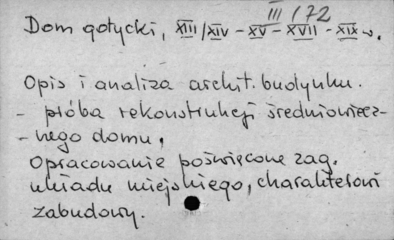 III/72
Dom gotycki, XIII/XIV - XV - XVII - XIX w.
Opis i analiza archit. budynku.
- próba rekonstrukcji średniowiecz-
- nego domu,
Opracowanie poświęcone zag.
układu miejskiego, charakterowi
zabudowy.